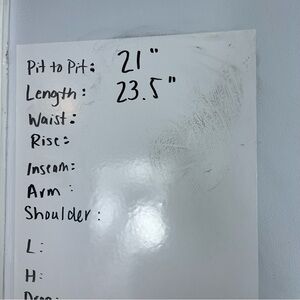 Pit to Pit: 21"
Length: 23.5"
Waist:
Rise:
Inseam:
Arm:
Shoulder:
L:
H: